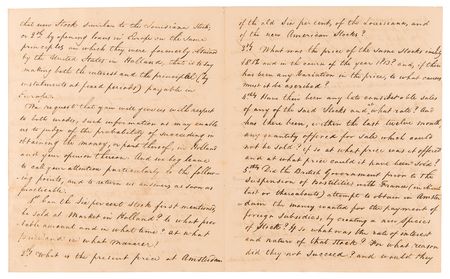 that new Stock similar to the Louisiana Stock,
or 2dly by opening loans in Europe on the same
principles on which they were formerly obtained
by the United States in Holland, that is to say
making both the interest and the principal (by
instalments at fixed periods) payable in
Europe.
We request that you will procure with respect
to both modes, such information as may enable
us to judge of the probability of succeeding in
obtaining the money, or part thereof, in Holland
and your opinion thereon. And we beg leave
to call your attention particularly to the follow-
ing points, and to return us answers as soon as
practicable.
1st Can the Six per cent Stock first mentioned,
be sold at Market in Holland? to what prob-
able amount and in what time? at what
price and in what manner?
2dly What is the present price at Amsterdam
of the old Six per cents, of the Louisianas, and
of the new American Stocks?
3dly What was the price of the same Stocks early
1812 and in the course of the year 1813? and, if there
has been any variation in the prices, to what causes
must it be ascribed?
4thly Have there been any late considerable sales
of any of the said Stocks and at what rate? And
has there been, within the last twelve months,
any quantity offered for sale which could
not be sold? if so at what price was it offered
and at what price could it have been sold?
5thly Did the British Government prior to the
suspension of hostilities with France (in
last or thereabouts) attempt to obtain in Amster-
dam the money wanted for the payment of
foreign subsidies, by creating a new species
of Stock? If so, what was the rate of interest
and nature of that Stock? For what reason
did they not succeed? and would they